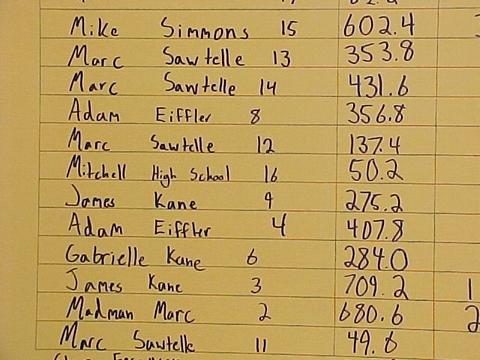 Mike Simmons 15 602.4
Marc Sawtelle 13 353.8
Marc Sawtelle 14 431.6
Adam Eiffler 8 356.8
Marc Sawtelle 12 137.4
Mitchell High School 16 50.2
James Kane 9 275.2
Adam Eiffler 4 407.8
Gabrielle Kane 6 284.0
James Kane 3 709.2 1
Madman Marc 2 680.6 2
Marc Sawtelle 11 49.8